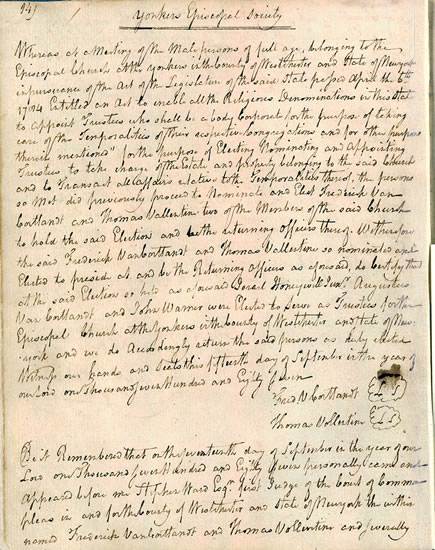 141
Yonkers Episcopal Society
Whereas at a Meeting of the Male persons of full age, belonging to the
Episcopal Church at the yonkers in the County of Westchester and State of Newyork
in pursuance of the Act of the Legislature of the said State passed April the 6th
1784 Entitled an Act to enable all the Religious Denominations in this State
to appoint Trustees who shall be a body Corporate for the purpose of taking
care of the Temporalities of their respective Congregations and for other purposes
therein mentioned" for the Purpose of Electing Nominating and Appointing
Trustees to take charge of the Estate and property belonging to the said Church
and to Transact all affairs relative to the Temporalities thereof, the persons
so Met did previously proceed to Nominate and Elect Frederick Van
Cortlandt and Thomas Vallentine two of the Members of the said Church
to hold the said Election and be the returning officers thereof. Wherefore
the said Frederick VanCortlandt and Thomas Vallentine so nominated and
Elected to preside at and be the Returning officers as aforesaid, do Certify that
at the said Election so held as aforesaid Honeywell Augustus
Van Cortlandt and John Warner were Elected to serve as Trustees for the
Episcopal Church at the Yonkers in the County of Westchester and State of New-
york and we do Accordingly return the said persons as duly elected
Witness our hands and Seals this fifteenth day of September in the year of
our Lord one Thousand seven Hundred and Eighty seven
Fred V Cortlandt LS
Thomas Vollentine LS
Be it Remembered that on the seventeenth day of September in the year of our
Lord one Thousand seven Hundred and Eighty seven personally came and
appeared before me Stephen Ward Esqr. first Judge of the Court of Common
pleas in and for the County of Westchester and State of Newyork the within
named Frederick VanCortlandt and Thomas Vollentine and severally